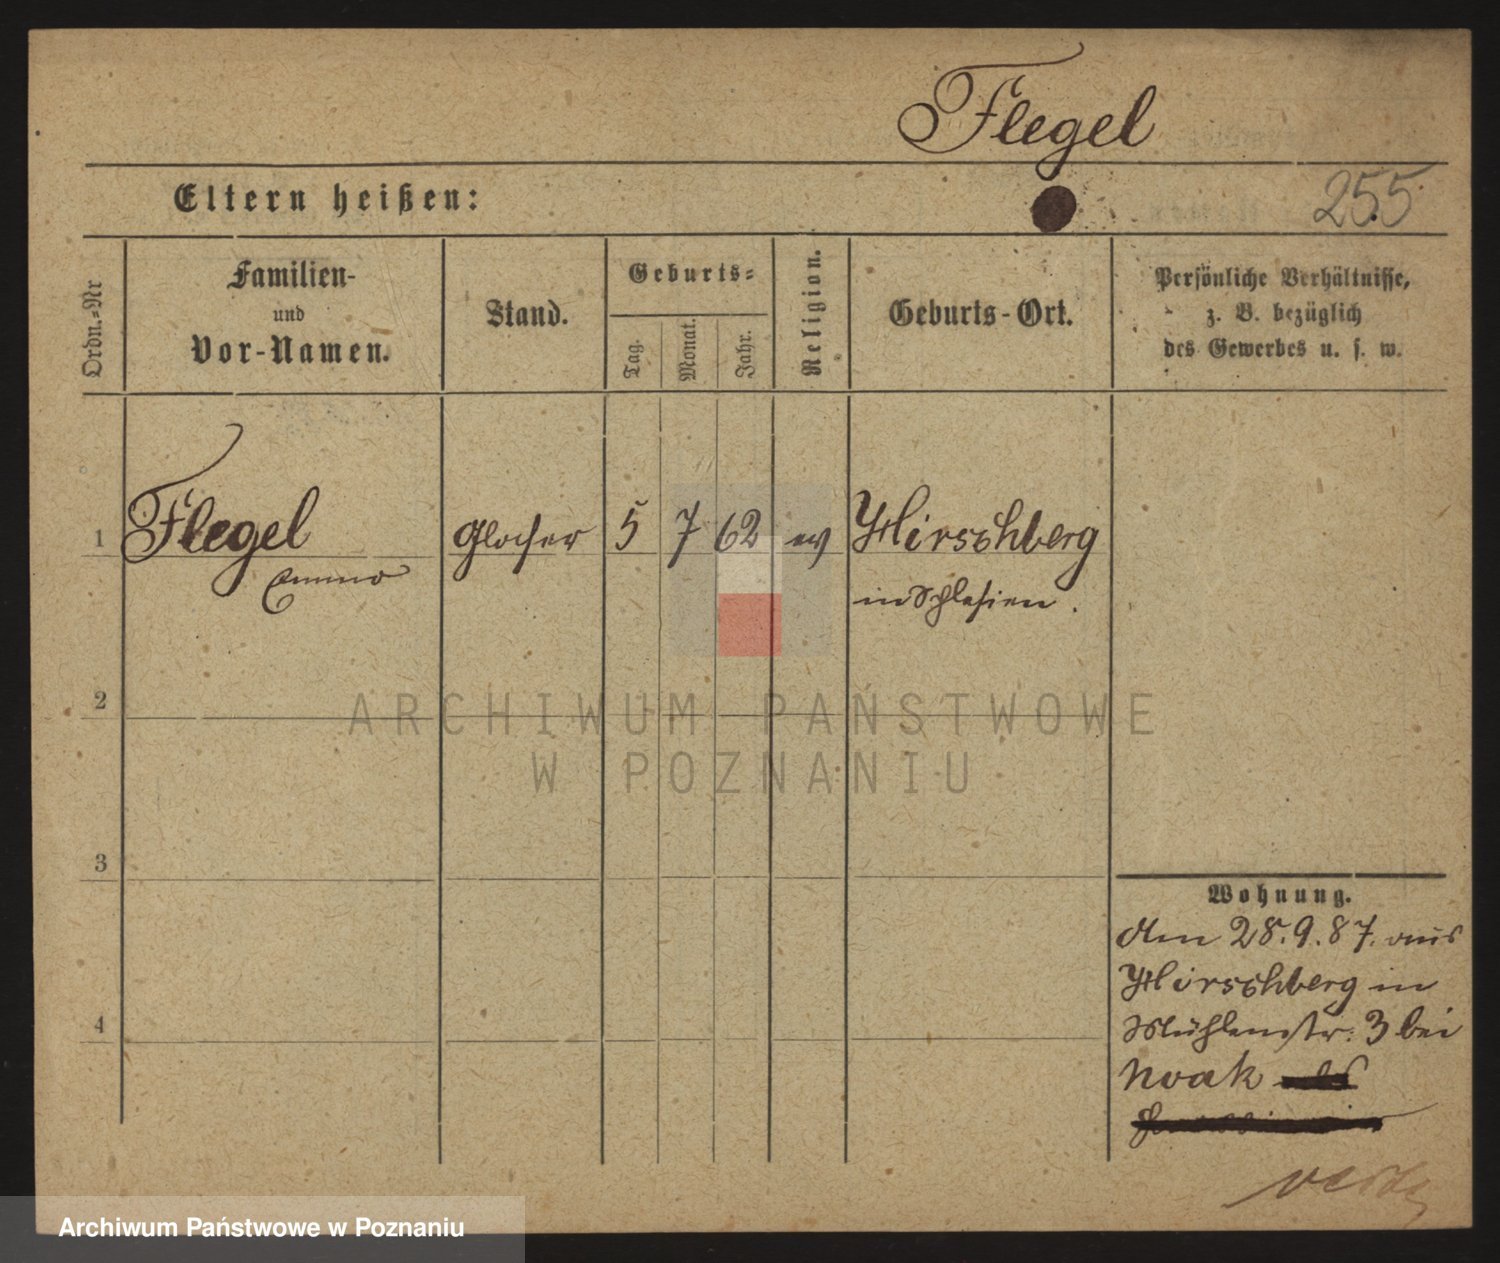 Flegel
Eltern heißen:
255
Ordn.=Nr
Familien-
und
Vor-Namen.
Stand.
Geburts=
Tag.
Monat.
Jahr.
Religion.
Geburts-Ort.
Persönliche Verhältnisse,
z. B. bezüglich
des Gewerbes u. s. w.
1
Flegel
Glaser
5
7
62
ev
Hirschberg
in Schlesien.
2
ARCHIWUM PAŃSTWOWE
W POZNANIU
3
4
Wohnung.
Am 28.9.87. aus
Hirschberg in
Mühlenstr. 3 bei
Noak
Archiwum Państwowe w Poznaniu